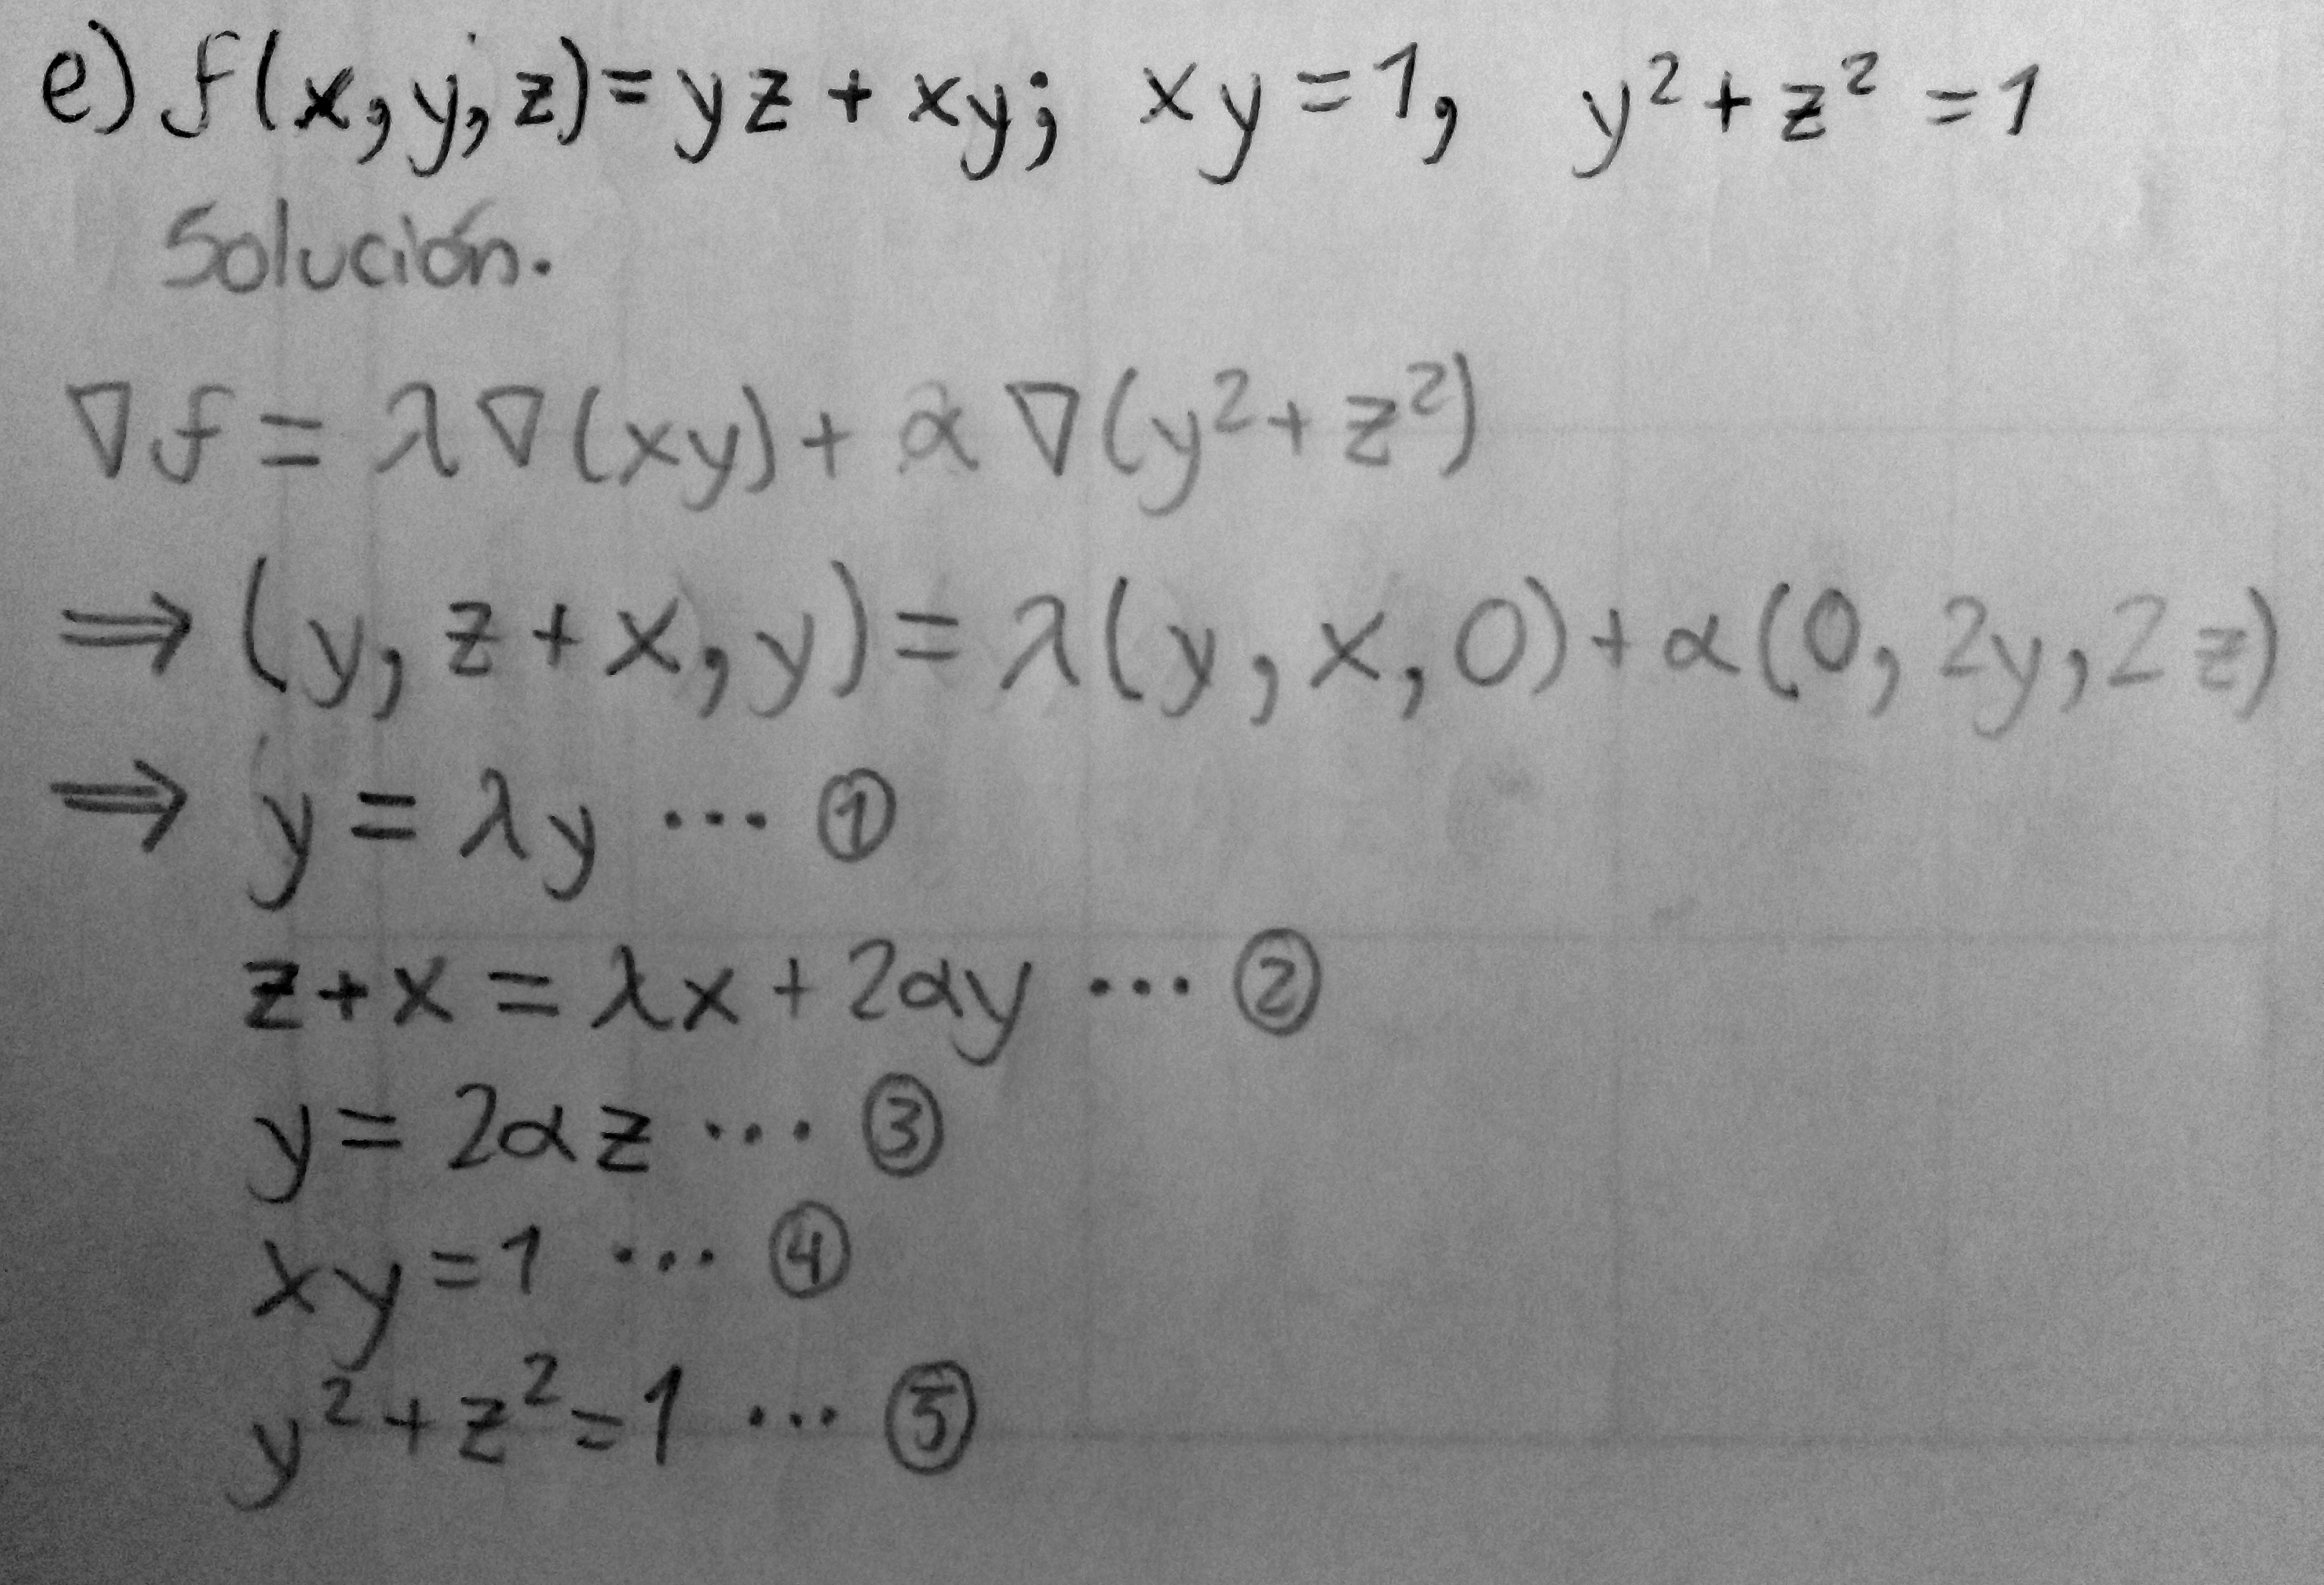 e) f(x, y, z) = yz + xy; xy = 1, y² + z² = 1
Solución.
∇f = λ∇(xy) + α∇(y² + z²)
⇒ (y, z + x, y) = λ(y, x, 0) + α(0, 2y, 2z)
⇒ y = λy ... ①
z + x = λx + 2αy ... ②
y = 2αz ... ③
xy = 1 ... ④
y² + z² = 1 ... ⑤